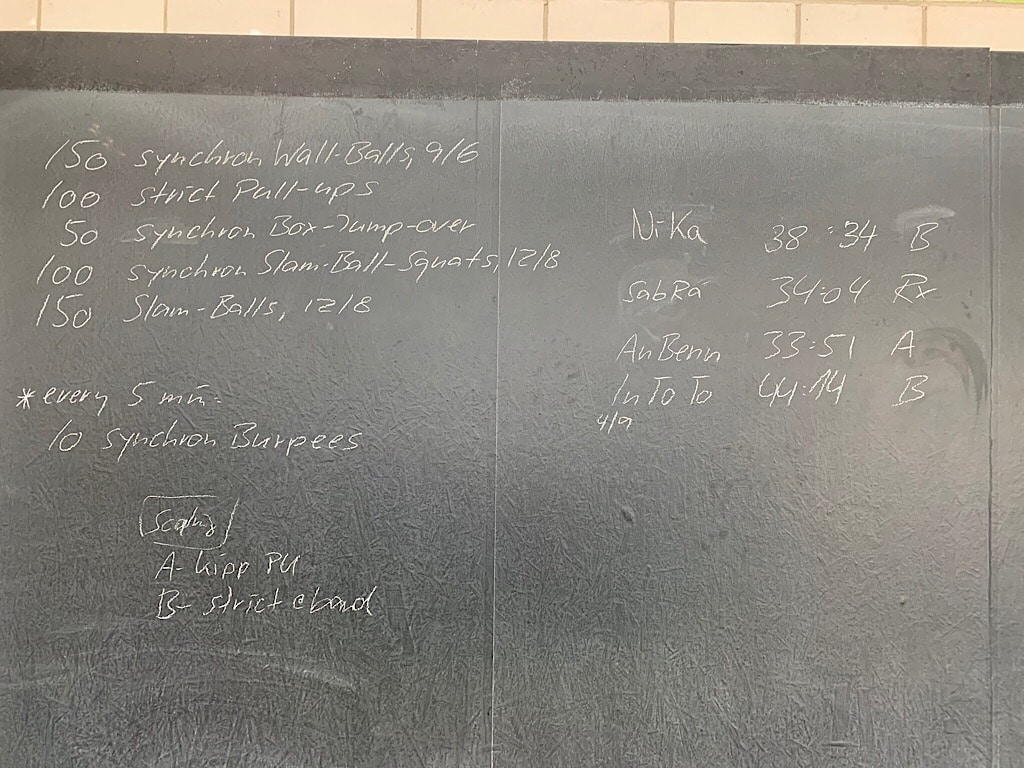 150 synchron Wall-Balls, 9/6
100 strict Pull-ups
50 synchron Box-Jump-over
100 synchron Slam-Ball-Squats, 12/8
150 Slam-Balls, 12/8
* every 5 min.
10 synchron Burpees
Scaling
A- kipp PU
B- strict e band
NiKa 38:34 B
SabRa 34:04 Rx
AnBenn 33:51 A
InToTo 44:14 B